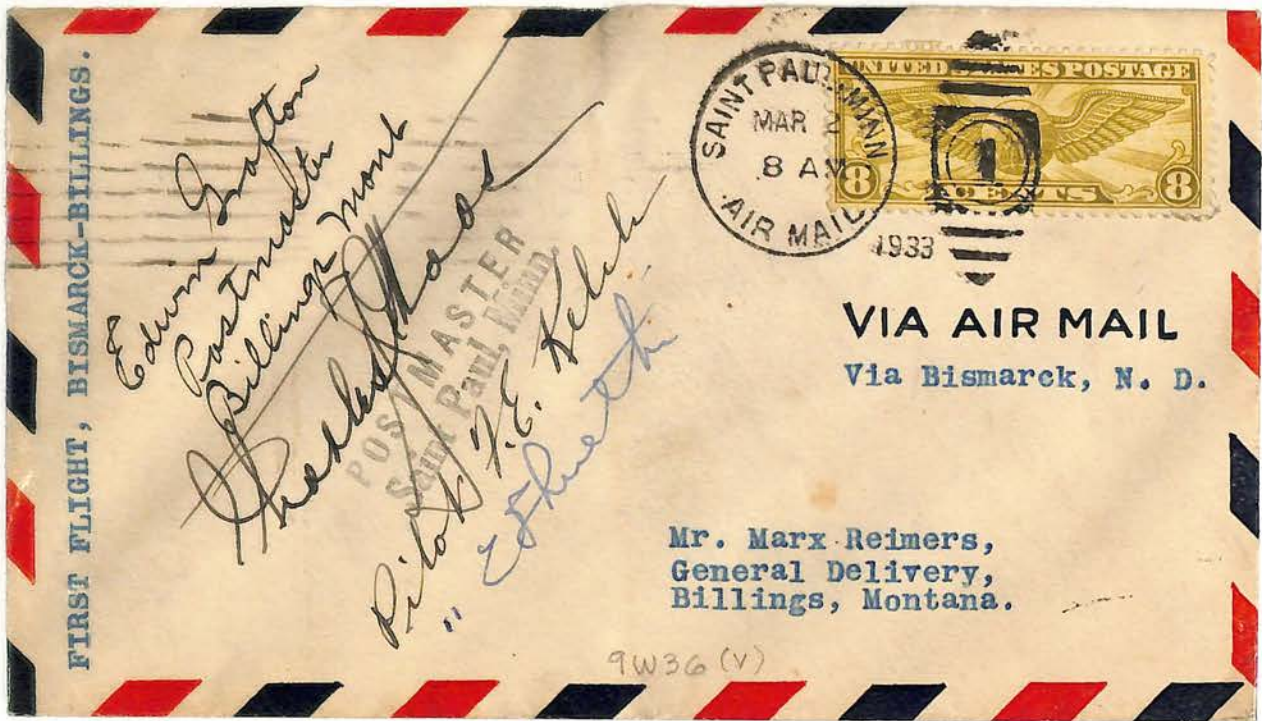 FIRST FLIGHT, BISMARCK-BILLINGS.
Edwin Grafton
Postmaster
Billings Mont
POSTMASTER
Saint Paul, Minn.
Pilot
"
SAINT PAUL, MINN
MAR 2
8 AM
AIR MAIL
1933
UNITED STATES POSTAGE
8 CENTS 8
1
VIA AIR MAIL
Via Bismarck, N. D.
Mr. Marx Reimers,
General Delivery,
Billings, Montana.
9W36 (V)